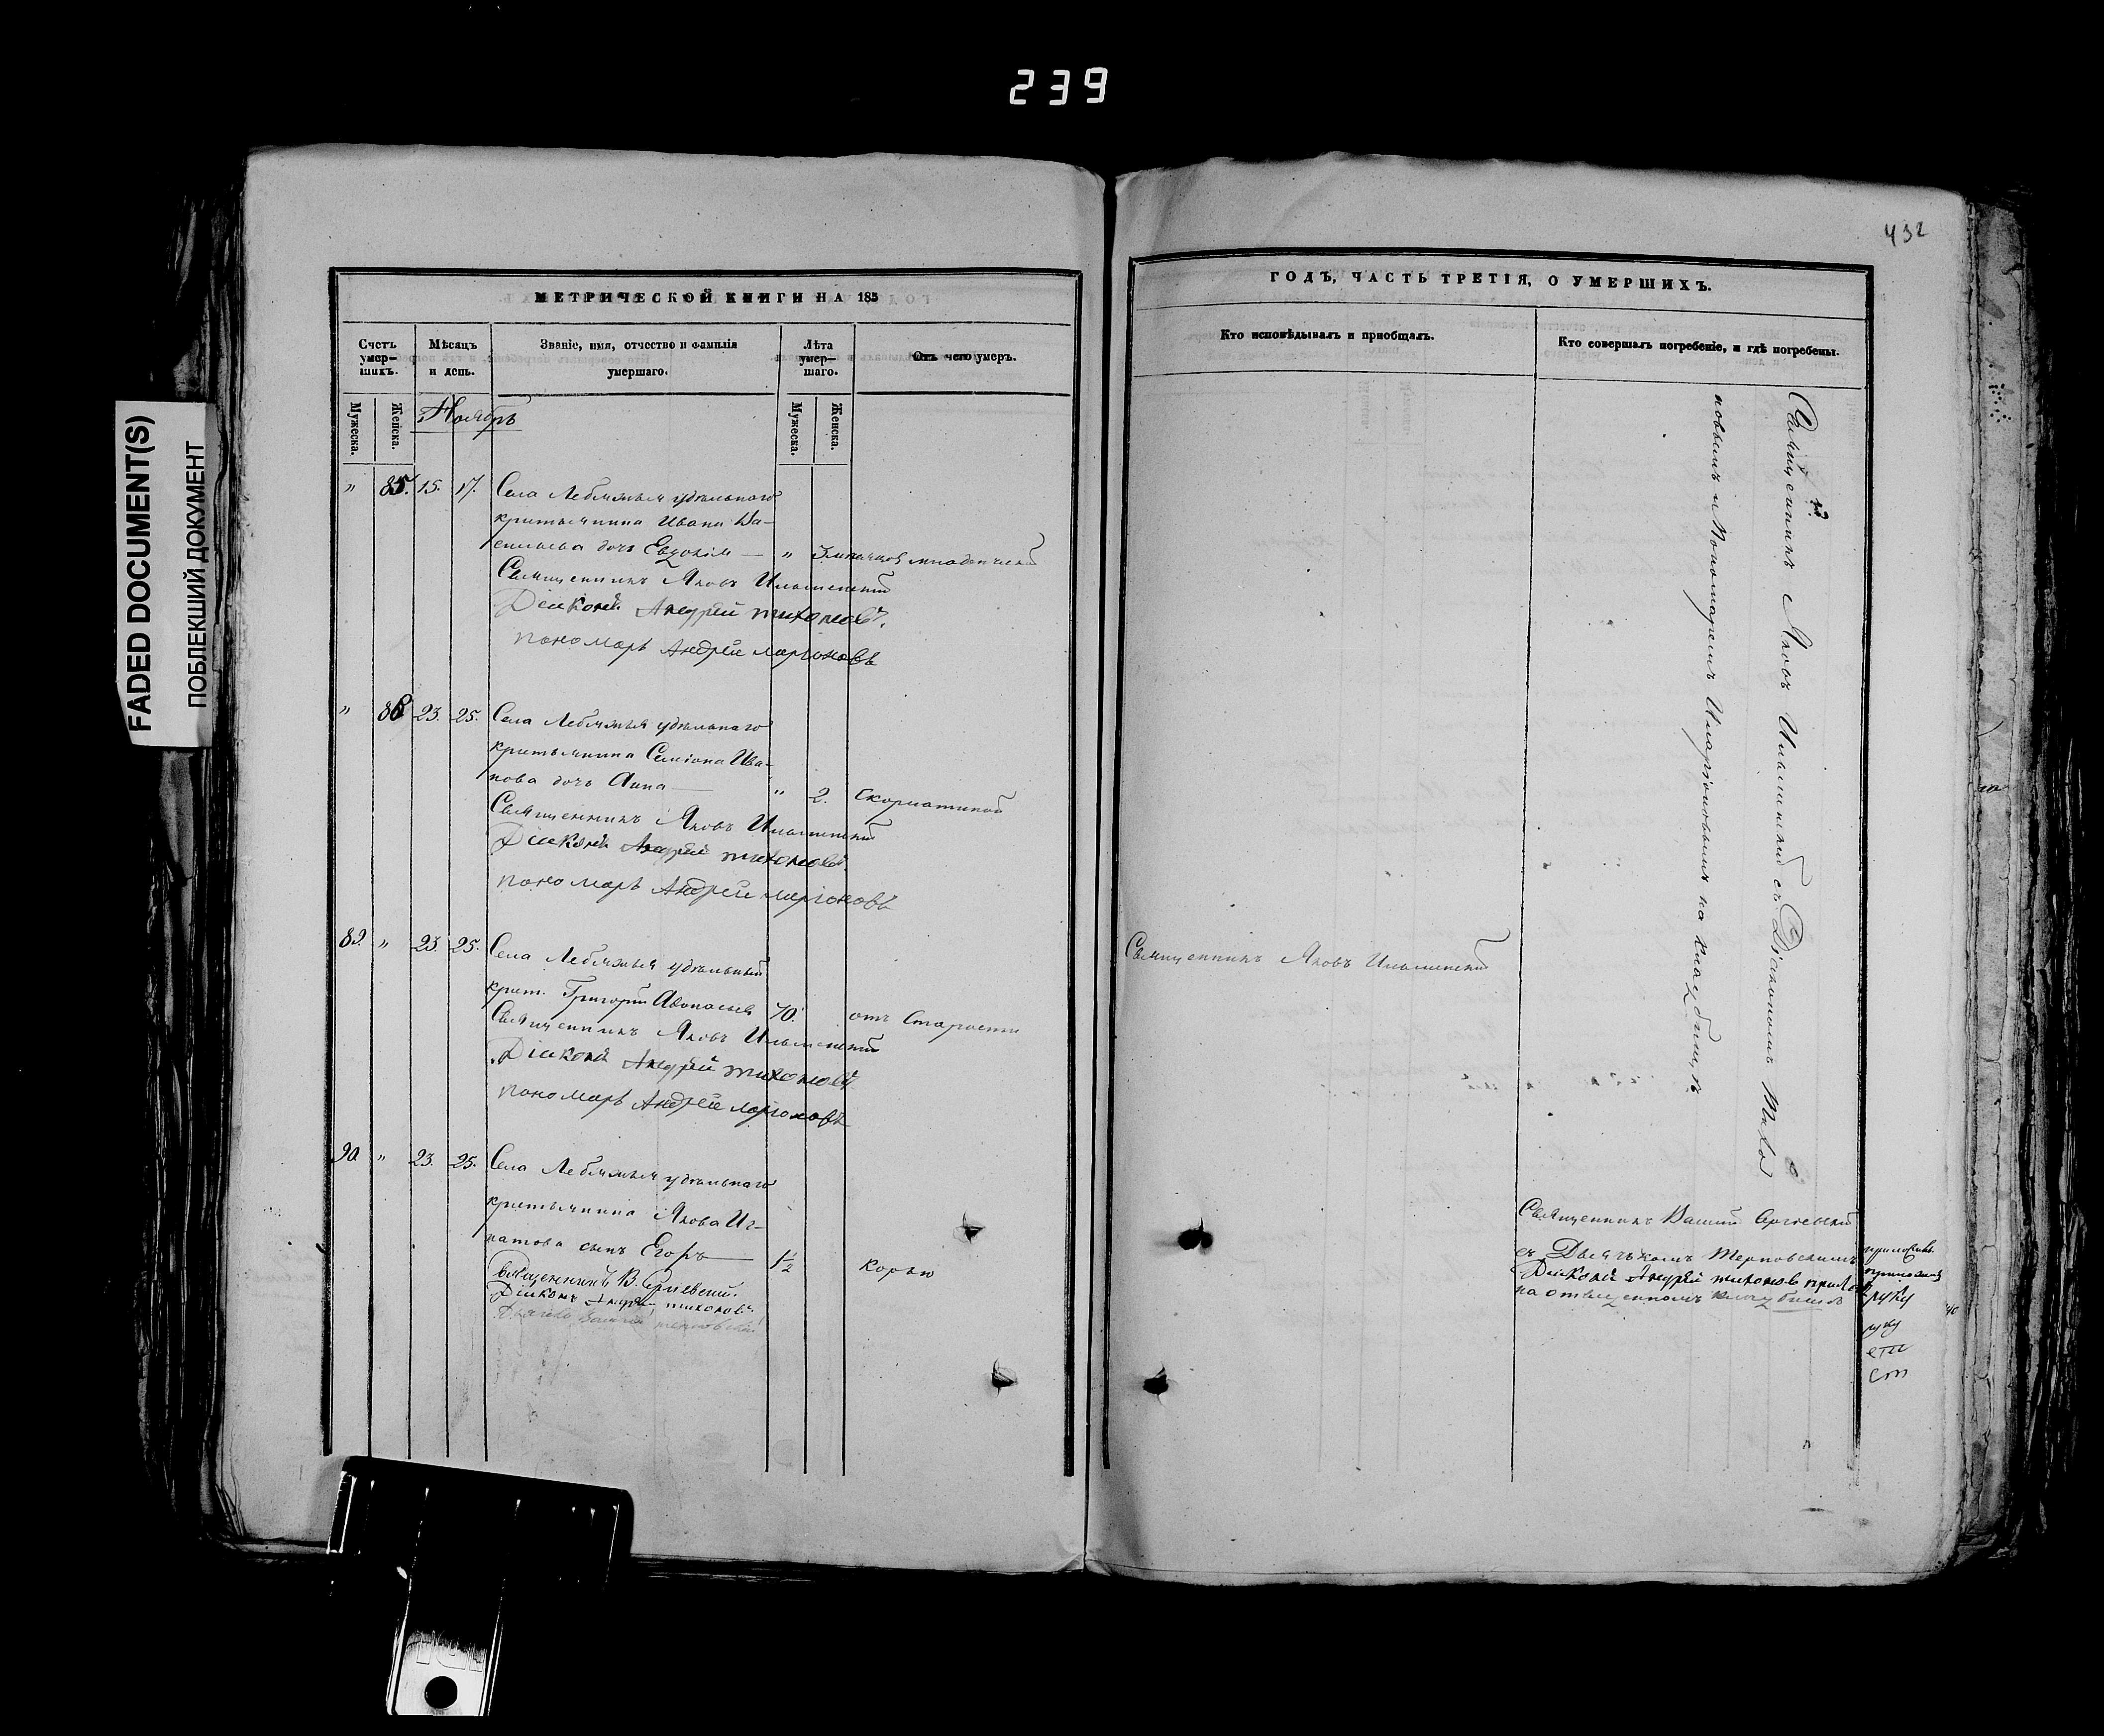 239
432
FADED DOCUMENT(S)
ПОБЛЕКШИЙ ДОКУМЕНТ
МЕТРИЧЕСКОЙ КНИГИ НА 185
Счетъ умер-шихъ.
Мѣсяцъ и день.
Званіе, имя, отчество и фамилія умершаго.
Лѣта умер-шаго.
Отъ чего умеръ.
Мужеска.
Женска.
Ноябрь
Мужеска.
Женска.
" 85. 15. 17. Села Лебяжья удѣльнаго
крестьянина Ивана Ва-
сильева дочь Евдокія — " младенческой
Священникъ Яковъ Ильминскій
Діаконъ Андрей Тихоновъ.
пономарь Андрей Ларіоновъ
" 86 23. 25. Села Лебяжья удѣльнаго
крестьянина Семіона Ива-
нова дочь Анна — " 2. Скорлатиной
Священникъ Яковъ Ильминскій
Діаконъ Андрей Тихоновъ.
пономарь Андрей Ларіоновъ
89. " 23. 25. Села Лебяжья удѣльный
крест. Григорій Авонасьев 70. отъ Старости
Священникъ Яковъ Ильминскій
Діаконъ Андрей Тихоновъ
пономарь Андрей Ларіоновъ
90. " 23. 25. Села Лебяжья удѣльнаго
крестьянина Якова Иг-
натова сынъ Егоръ — 1 1/2 Корью
Священникъ В.
Діаконъ Андрей Тихоновъ
ГОДЪ, ЧАСТЬ ТРЕТІЯ, О УМЕРШИХЪ.
Кто исповѣдывалъ и пріобщалъ.
Кто совершалъ погребеніе, и гдѣ погребены.
Священникъ Яковъ Ильминскій съ Діакономъ Тихо
новымъ и Пономаремъ Иларіоновымъ на кладбищѣ
Священникъ Яковъ Ильминскій
Священникъ
съ Дьячькомъ Терновскимъ
Діаконъ Андрей Тихоновъ
на отведенномъ кладбищѣ
руку
руку